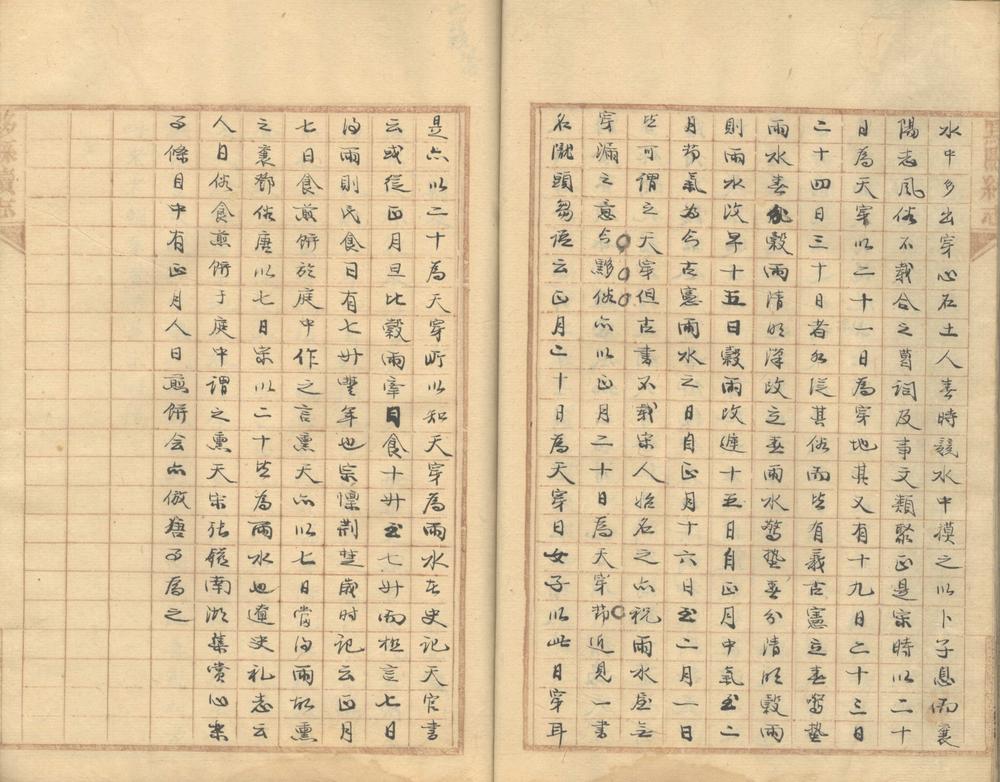 水中多出穿心石土人春時競水中摸之以卜子息而襄
陽志風俗不載合之曹詞及事文類聚正是宋時以二十
日為天穿以二十一日為穿地其又有十九日二十三日
二十四日三十日者各從其俗而皆有義古憲立春驚蟄
雨水春分穀雨清明漢改立春雨水驚蟄春分清明穀雨
則雨水改早十五日穀雨改遲十五日自正月中氣至二
月節氣為今古憲雨水之日自正月十六日至二月一日
皆可謂之天穿但古書不載宋人始名之亦祝雨水屋無
穿漏之意今黟俗亦以正月二十日為天穿節近見一書
名隴頭芻語云正月二十日為天穿日女子以此日穿耳
是亦以二十為天穿所以知天穿為雨水在史記天官書
云或從正月旦比穀雨率日食十廾至七廾而極言七日
得雨則民食日有七廾豐年也宗懍荊楚歲時記云正月
七日食煎餅於庭中作之言熏天亦以七日當得雨故熏
之襄鄧俗唐以七日宋以二十皆為雨水也遼史礼志云
人日俗食煎餅于庭中謂之熏天宋張鎡南湖集賞心樂
事條目中有正月人日煎餅会亦倣為之